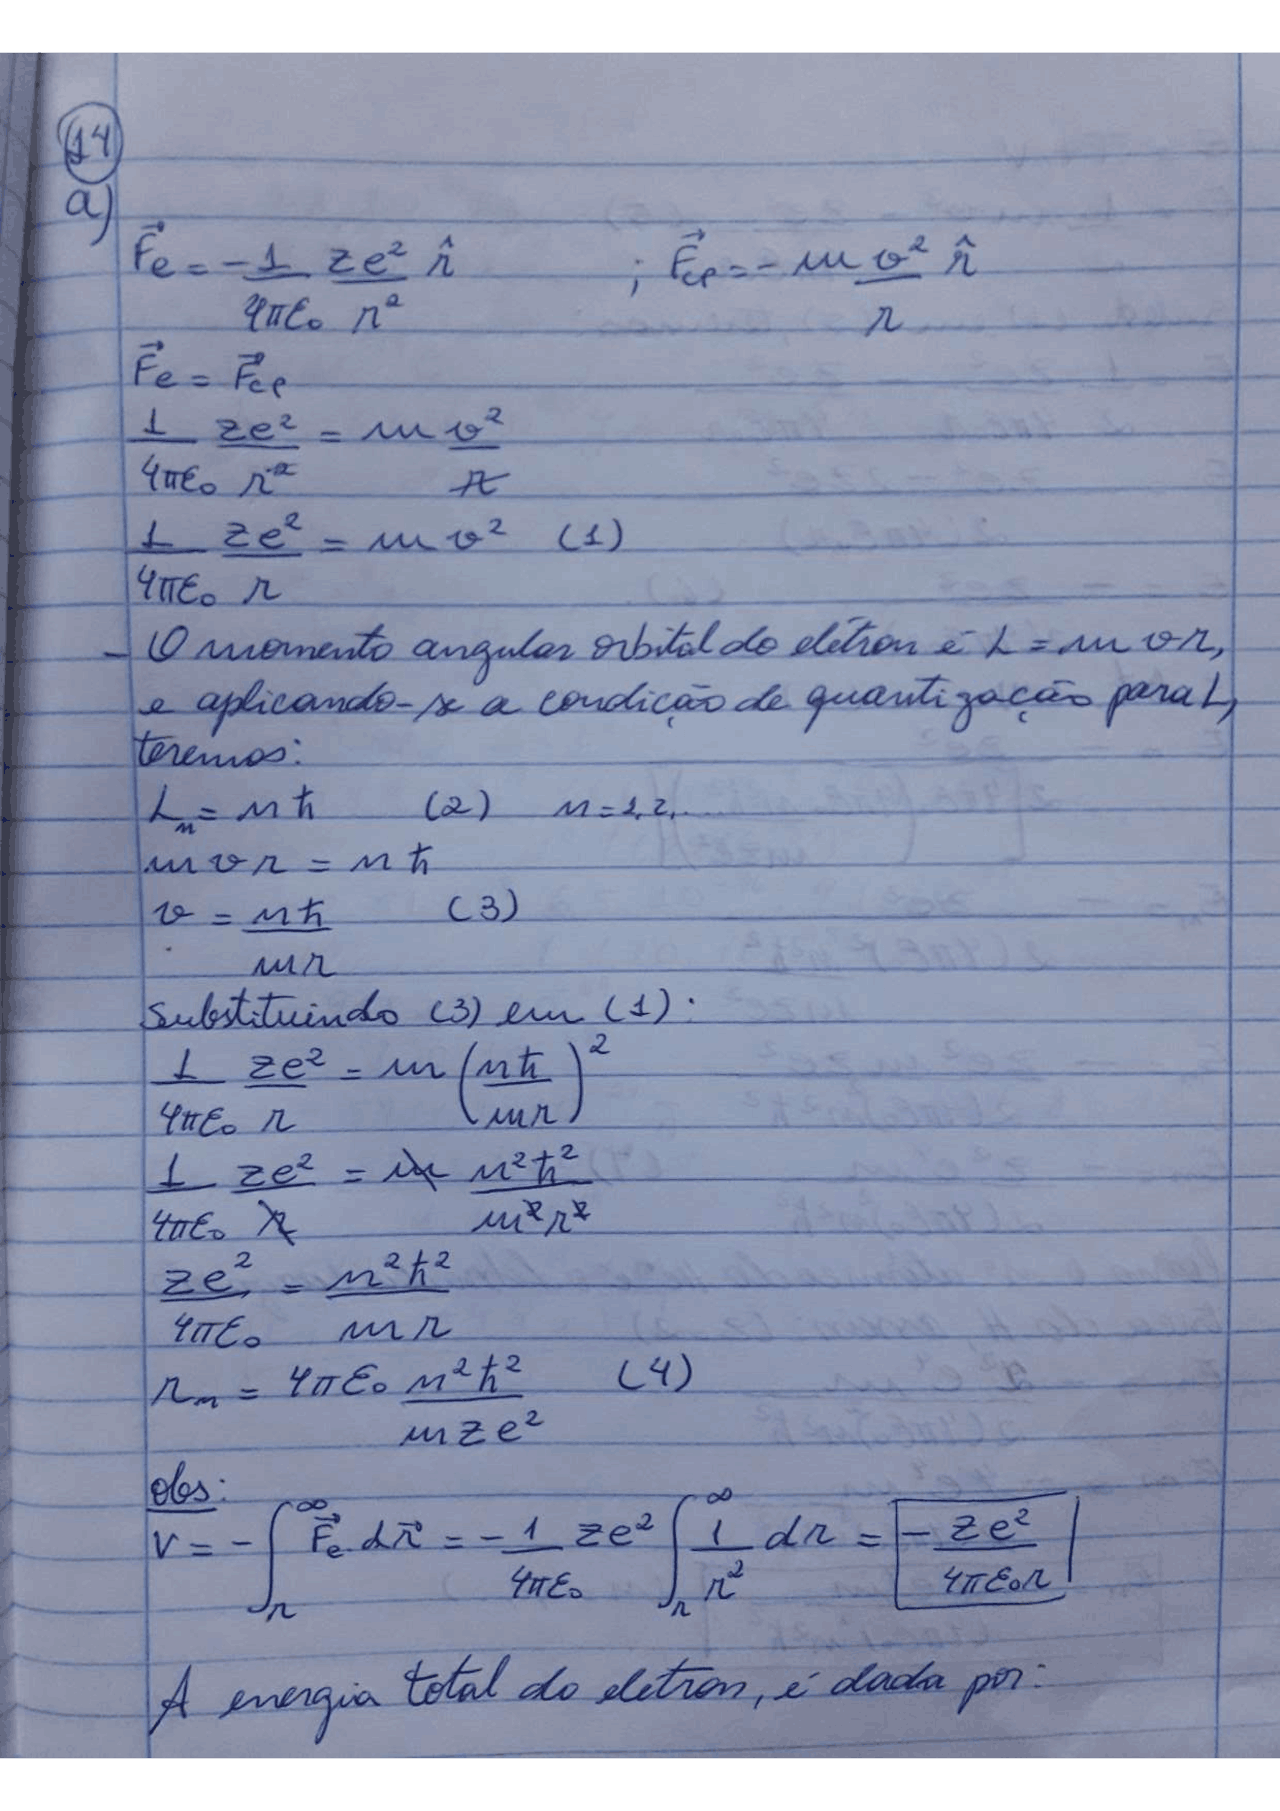 14
a)
F⃗e = - 1/4πε₀ ze²/r² r̂ ; F⃗cp = - m v²/r r̂
F⃗e = F⃗cp
1/4πε₀ ze²/r² = m v²/r
1/4πε₀ ze²/r = m v² (1)
- O momento angular orbital do elétron é L = m v r,
e aplicando-se a condição de quantização para L,
teremos:
Lₙ = n ħ (2) n = 1, 2, ...
m v r = n ħ
v = nħ/mr (3)
Substituindo (3) em (1):
1/4πε₀ ze²/r = m (nħ/mr)²
1/4πε₀ ze²/r = m n²ħ²/m²r²
ze²/4πε₀ = n²ħ²/mr
rₙ = 4πε₀ n²ħ²/mze² (4)
obs:
V = - ∫ᵣ^∞ F⃗e dr⃗ = - 1/4πε₀ ze² ∫ᵣ^∞ 1/r² dr = - ze²/4πε₀r
A energia total do elétron, é dada por: